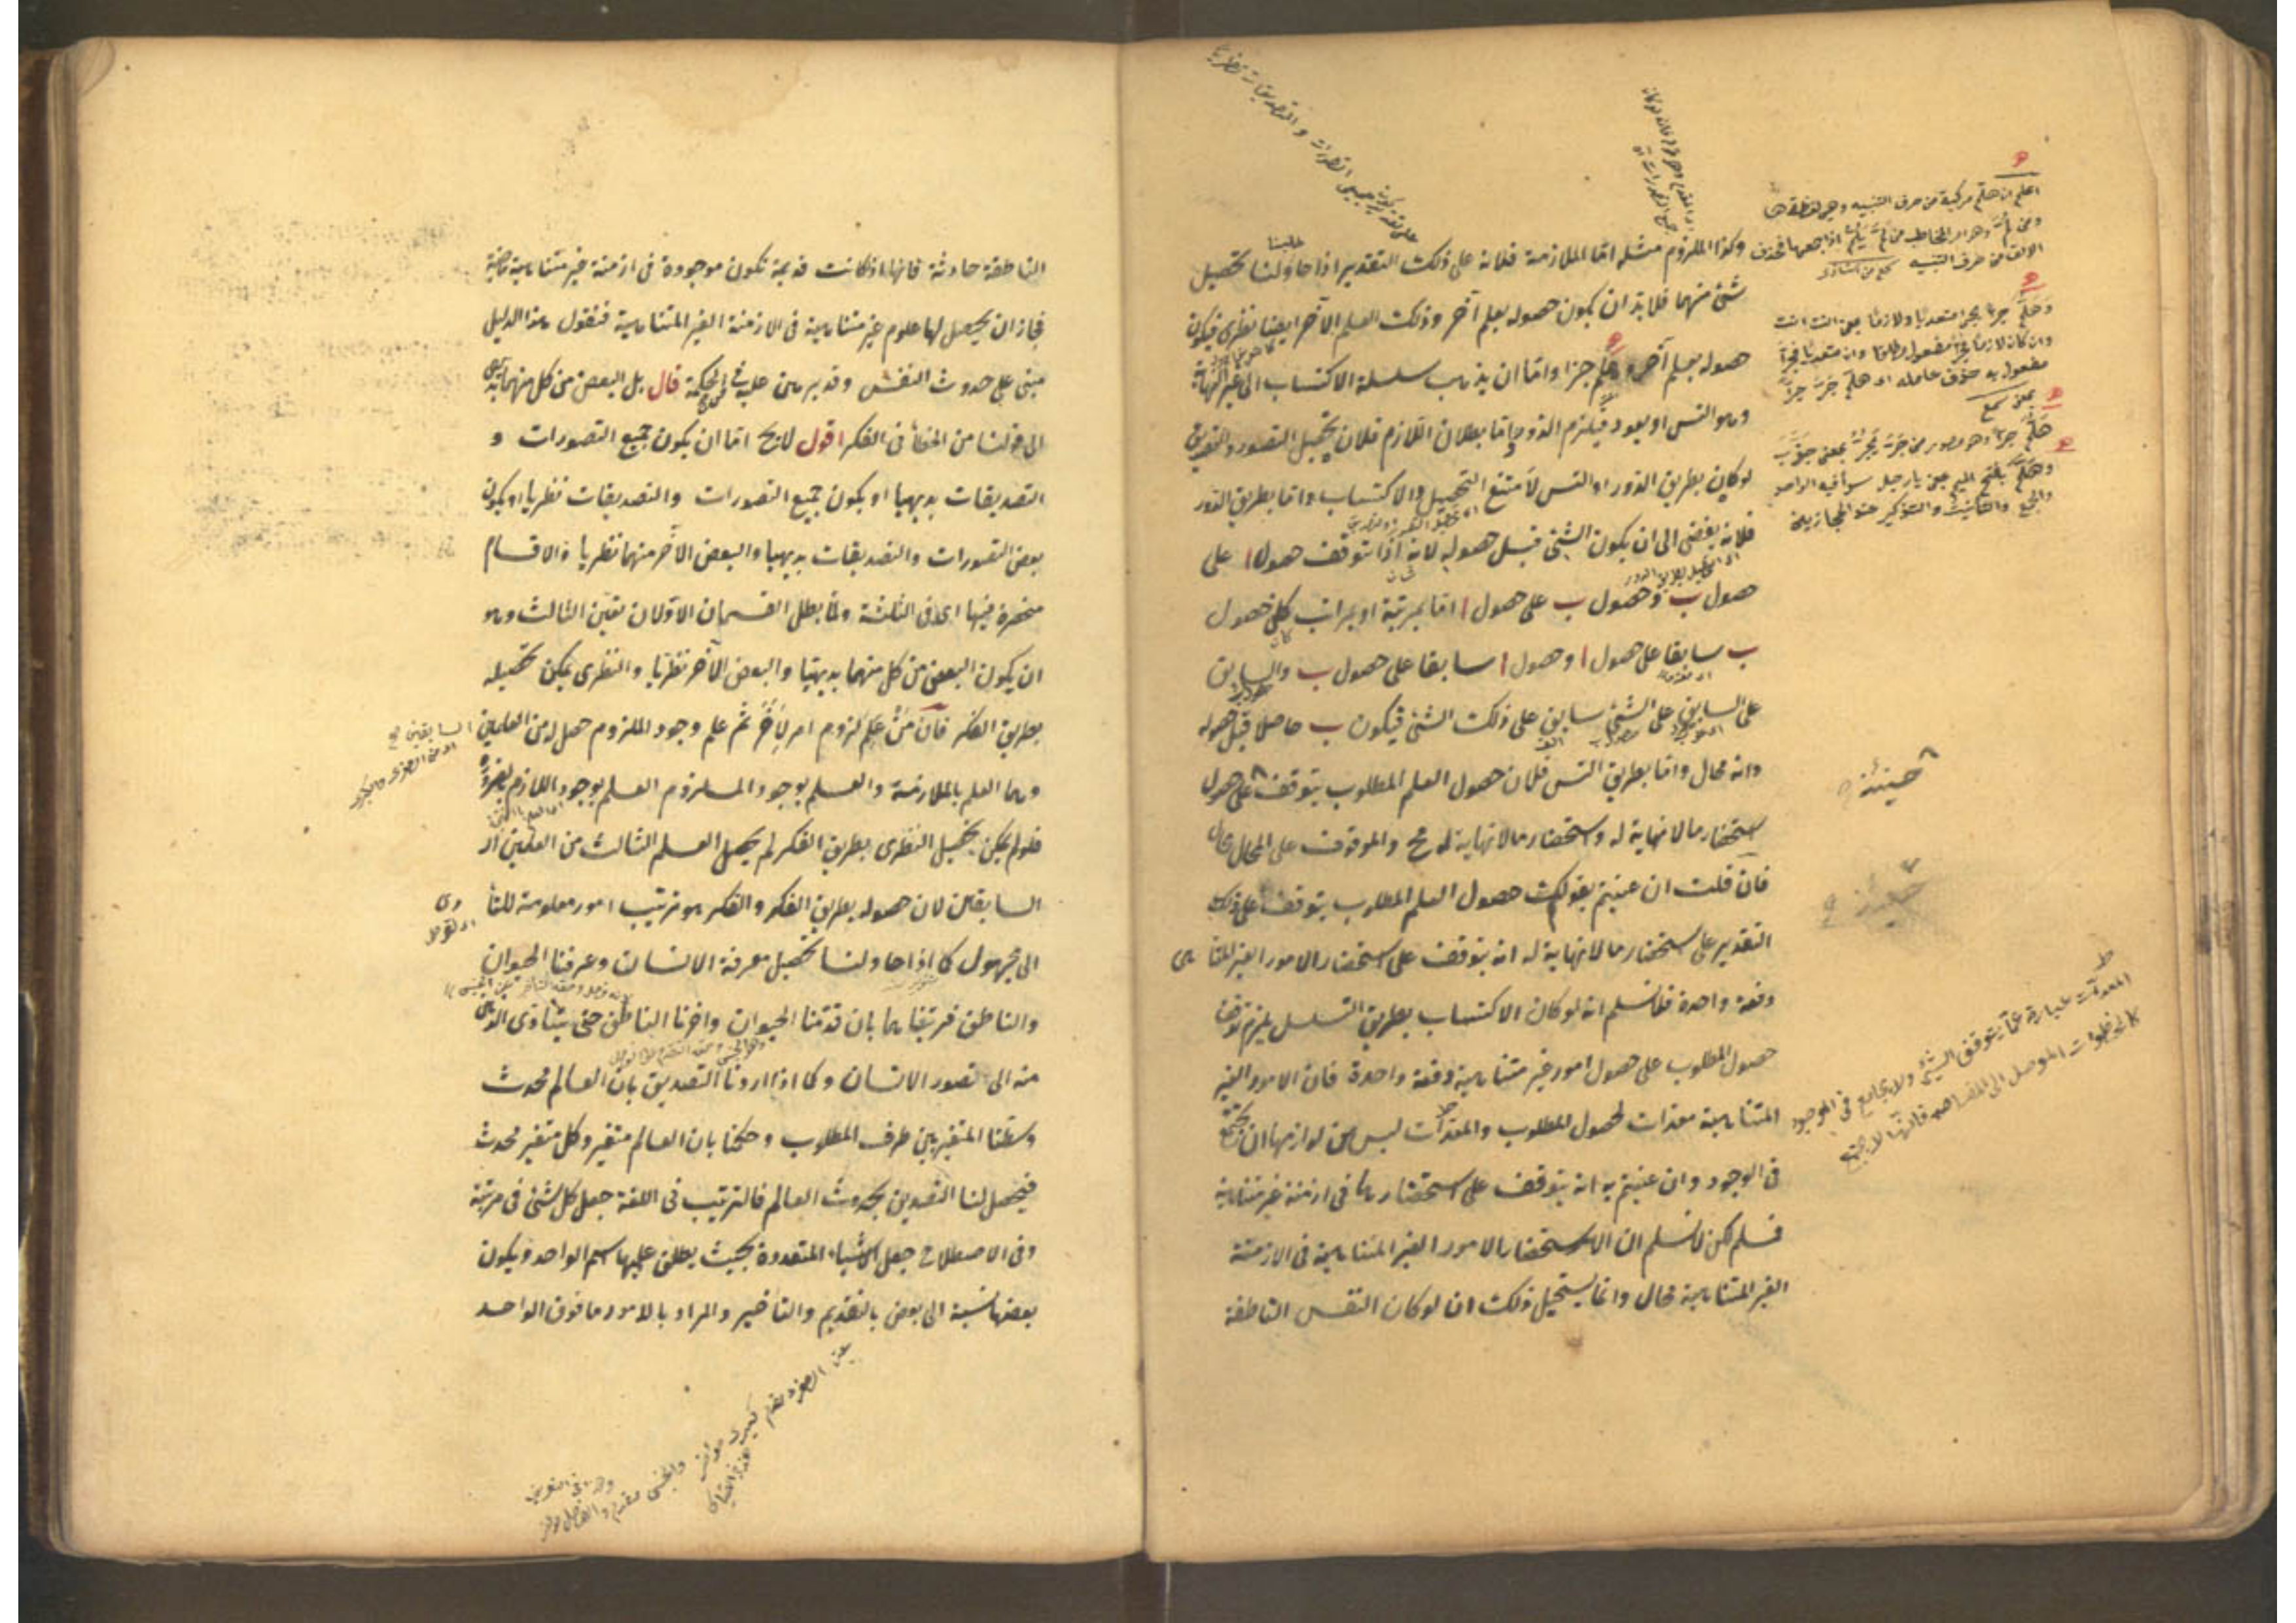 وكذا الملزوم مثله اما الملازمة فلانه على ذلك التقدير اذا حاولنا تحصيل
شئ منهما فلا بد ان يكون حصوله بعلم آخر وذلك العلم الآخر ايضا نظرى فيكون
حصوله بعلم آخر وهلم جرا واما ان يذهب سلسلة الاكتساب الى غير النهاية
وهو التس او يعود فيلزم الدور واما بطلان اللازم فلان تحصيل التصور والتصديق
لو كان بطريق الدور او التس لامتنع التحصيل والاكتساب اما بطريق الدور
فلانه يفضى الى ان يكون الشئ قبل حصوله لانه اذا توقف حصول ا على
حصول ب وحصول ب على حصول ا اما بمرتبة او بمراتب كان حصول
ب سابقا على حصول ا وحصول ا سابقا على حصول ب والسابق
على السابق على الشئ سابق على ذلك الشئ فيكون ب حاصلا قبل حصوله
وانه محال واما بطريق التس فلان حصول العلم المطلوب يتوقف على حصول
استحضار ما لا نهاية له واستحضار ما لا نهاية له مح والموقوف على المحال محال
فان قلت ان عنيتم بقولكم حصول العلم المطلوب يتوقف على ذلك
التقدير على استحضار ما لا نهاية له انه يتوقف على استحضار الامور الغير المتناهى
دفعة واحدة فلا نسلم انه لو كان الاكتساب بطريق التسلسل يلزم توقف
حصول المطلوب على حصول امور غير متناهية دفعة واحدة فان الامور الغير
المتناهية معدات لحصول المطلوب والمعدات ليس من لوازمها ان تجتمع
فى الوجود وان عنيتم به انه يتوقف على استحضارها فى ازمنة غير متناهية
فسلم لكن لا نسلم ان الاستحضار الامور الغير المتناهية فى الازمنة
الغير المتناهية محال وانما يستحيل ذلك ان لو كان النفس الناطقة
اعلم ان هلم مركبة من حرف التنبيه وهى لفظة ها
الالف من حرف التنبيه
وهلم جرا يجئ متعديا ولازما بمعنى ائت ائت
مفعول به حذف عامله اى هلم جر جرا
وهلم بفتح الميم بمعنى يا رجل سواء فيه الواحد
والجمع والتأنيث والتذكير عند الحجازيين
حينئذ
المعدات عبارة عما يتوقف الشئ ولا يجامع فى الوجود
كالخطوات الموصل الى المقاصد فانها لا تجتمع
الناطقة حادثة فانها اذا كانت قديمة تكون موجودة فى ازمنة غير متناهية ماضية
فجاز ان يحصل لها علوم غير متناهية فى الازمنة الغير المتناهية فنقول هذا الدليل
مبنى على حدوث النفس وقد برهن عليه فى الحكمة قال بل البعض من كل منهما بديهى
الى قولنا من الخطأ فى الفكر اقول لا يخ اما ان يكون جميع التصورات و
التصديقات بديهيا او يكون جميع التصورات والتصديقات نظريا او يكون
بعض التصورات والتصديقات بديهيا والبعض الآخر منهما نظريا فالاقسام
منحصرة فيها اى فى الثلثة ولما بطل القسمان الاولان تعين الثالث وهو
ان يكون البعض من كل منهما بديهيا والبعض الآخر نظريا والنظرى يمكن تحصيله
بطريق الفكر فان من علم لزوم امر لآخر ثم علم وجود الملزوم حصل له من العلمين
السابقين
وهما العلم بالملازمة والعلم بوجود الملزوم العلم بوجود اللازم بالضرورة
فلو لم يكن تحصيل النظرى بطريق الفكر لم يحصل العلم الثالث من العلمين
السابقين لان حصوله بطريق الفكر والفكر هو ترتيب امور معلومة للتأدى
الى مجهول كما اذا حاولنا تحصيل معرفة الانسان وعرفنا الحيوان
والناطق فرتبناهما بان قدمنا الحيوان واخرنا الناطق حتى يتأدى الذهن
منه الى تصور الانسان وكما اذا اردنا التصديق بان العالم محدث
وسطنا المتغير بين طرفى المطلوب وحكمنا بان العالم متغير وكل متغير محدث
فيحصل لنا التصديق بحدوث العالم فالترتيب فى اللغة جعل كل شئ فى مرتبة
وفى الاصطلاح جعل الاشياء المتعددة بحيث يطلق عليها اسم الواحد ويكون
بعضها نسبة الى بعض بالتقديم والتاخير والمراد بالامور ما فوق الواحد